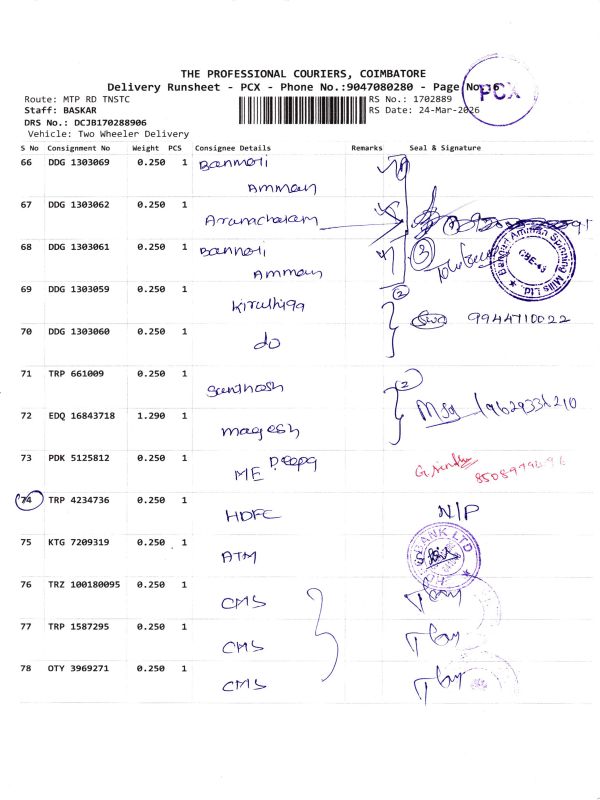 THE PROFESSIONAL COURIERS, COIMBATORE
Delivery Runsheet - PCX - Phone No.:9047080280 - Page No:6
PCX
Route: MTP RD TNSTC
RS No.: 1702889
Staff: BASKAR
RS Date: 24-Mar-2026
DRS No.: DCJB170288906
Vehicle: Two Wheeler Delivery
S No Consignment No Weight PCS Consignee Details Remarks Seal & Signature
66 DDG 1303069 0.250 1 Bannari
Amman
67 DDG 1303062 0.250 1
Arunachalam
68 DDG 1303061 0.250 1 Bannari
Amman
3
Bannari Amman Spinning Mills Ltd.
CBE-43
69 DDG 1303059 0.250 1
Kiruthiga
2
9944710022
70 DDG 1303060 0.250 1
do
71 TRP 661009 0.250 1
Santhosh
2
72 EDQ 16843718 1.290 1
Magesh
73 PDK 5125812 0.250 1
ME Deepa
74 TRP 4234736 0.250 1
HDFC
N/P
75 KTG 7209319 0.250 1
ATM
BANK LTD
76 TRZ 100180095 0.250 1
CMS
77 TRP 1587295 0.250 1
CMS
78 OTY 3969271 0.250 1
CMS